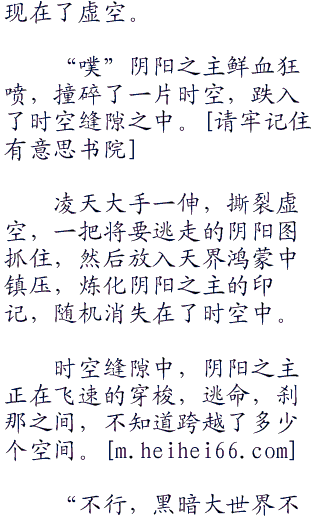 现在了虚空。
“噗”阴阳之主鲜血狂
喷，撞碎了一片时空，跌入
了时空缝隙之中。[请牢记住
有意思书院]
凌天大手一伸，撕裂虚
空，一把将要逃走的阴阳图
抓住，然后放入天界鸿蒙中
镇压，炼化阴阳之主的印
记，随机消失在了时空中。
时空缝隙中，阴阳之主
正在飞速的穿梭，逃命，刹
那之间，不知道跨越了多少
个空间。[m.heihei66.com]
“不行，黑暗大世界不